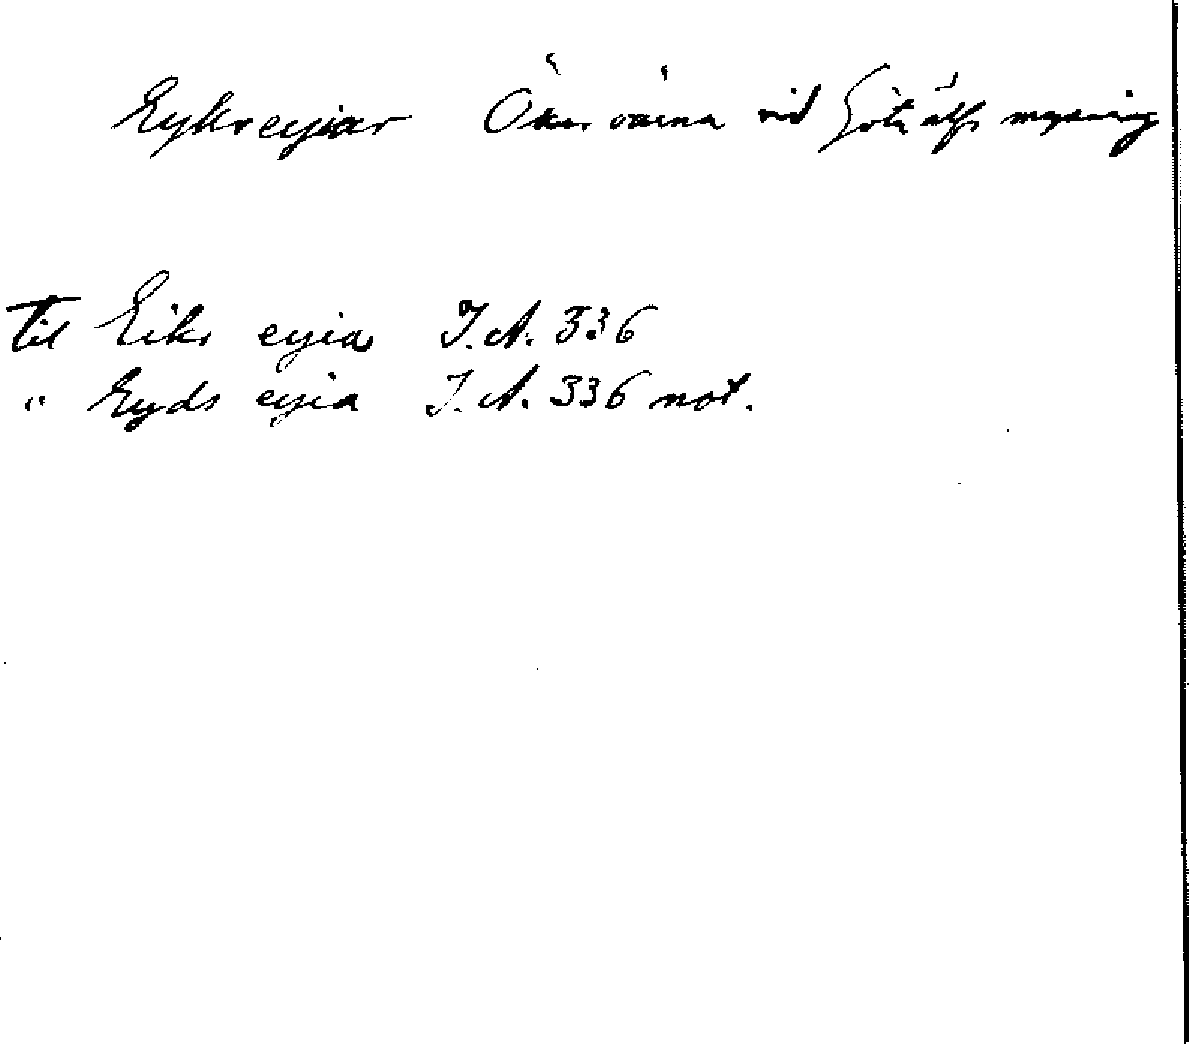 Eykreyiar Öckeröarna vid Göta älfs mynning
Til Eikr eyia I.A. 336
" Eyds eyia I.A. 336 not.